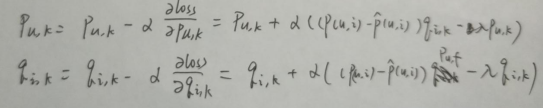 P_{u,k} = P_{u,k} - α ∂loss/∂P_{u,k} = P_{u,k} + α((P(u,i) - P̂(u,i)) q_{i,k} - λP_{u,k})
q_{i,k} = q_{i,k} - α ∂loss/∂q_{i,k} = q_{i,k} + α((P(u,i) - P̂(u,i)) P_{u,f} - λq_{i,k})